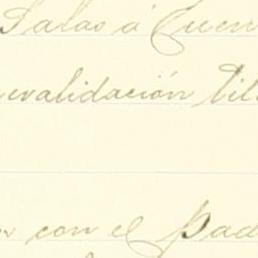 Salas á Cuen
revalidación bil
con el pad